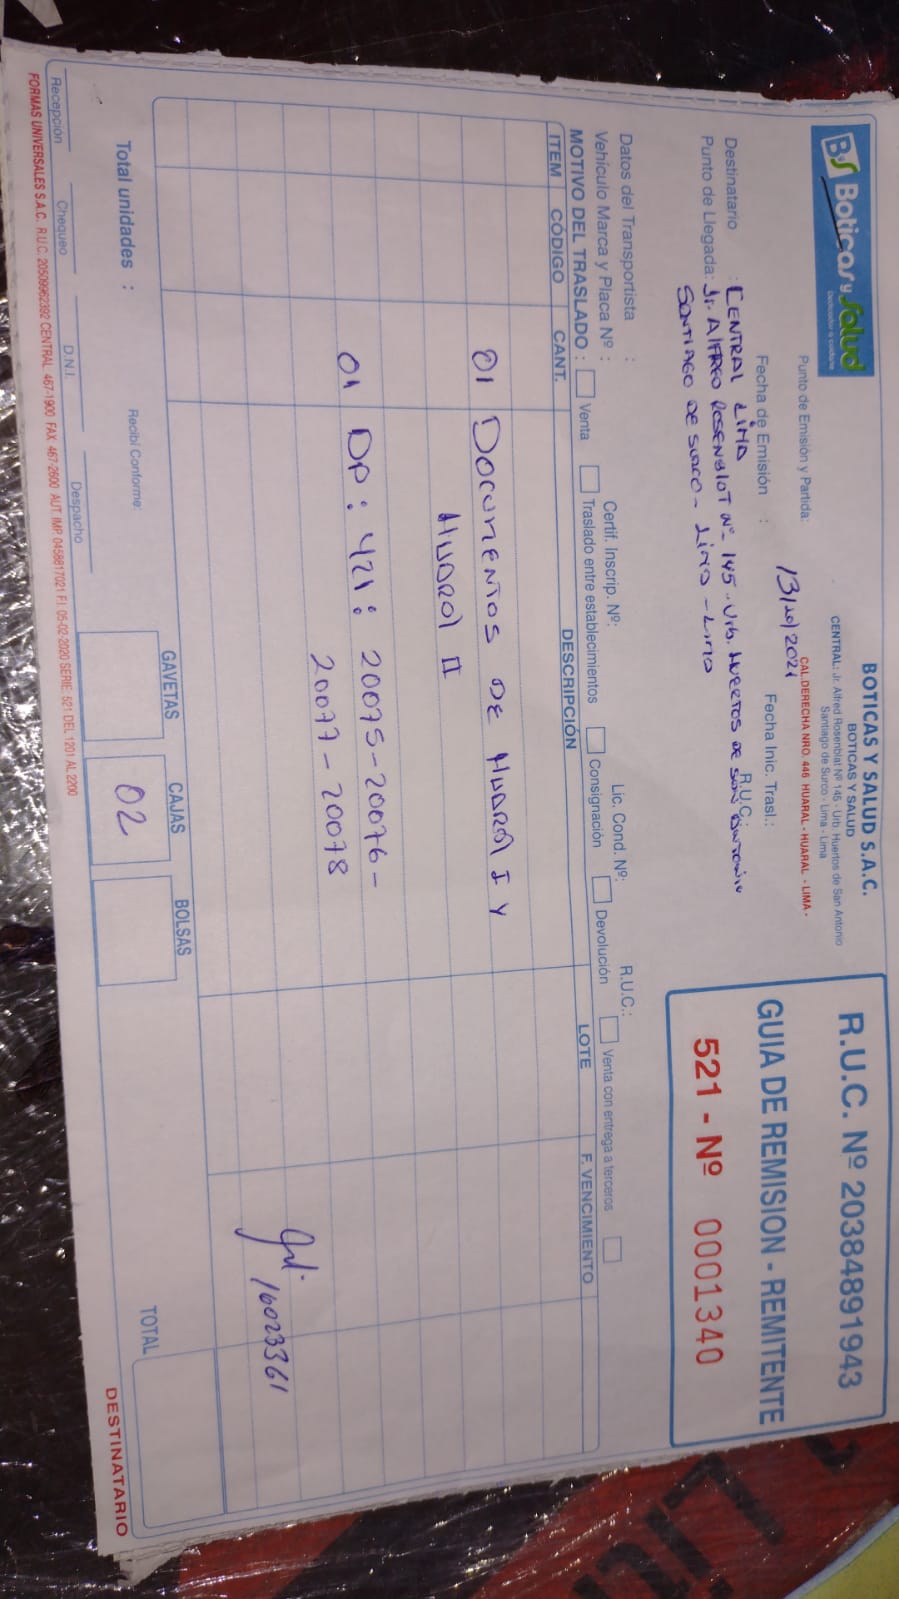 BS Boticas y Salud
Dedicados a cuidarte
BOTICAS Y SALUD S.A.C.
BOTICAS Y SALUD
CENTRAL: Jr. Alfred Rosenblat Nº 145 - Urb. Huertos de San Antonio
Santiago de Surco - Lima - Lima
Punto de Emisión y Partida: CAL.DERECHA NRO. 446 HUARAL - HUARAL - LIMA -
Fecha de Emisión : 13/10/2021 Fecha Inic. Trasl.:
R.U.C. Nº 20384891943
GUIA DE REMISION - REMITENTE
521 - Nº 0001340
Destinatario : CENTRAL LIMA R.U.C.:
Punto de Llegada: Jr. ALFREO ROSENBLOT Nº 145 - Urb. HUERTOS DE SAN ANTONIO
SANTIAGO DE SURCO - LIMA - LIMA
Datos del Transportista : R.U.C.:
Vehículo Marca y Placa Nº : Certif. Inscrip. Nº: Lic. Cond. Nº:
MOTIVO DEL TRASLADO : Venta Traslado entre establecimientos Consignación Devolución Venta con entrega a terceros
ITEM CÓDIGO CANT. DESCRIPCIÓN LOTE F. VENCIMIENTO
01 DOCUMENTOS DE HUARAL I Y
HUARAL II
01 DP: 421: 20075-20076-
20077-20078
16023361
GAVETAS CAJAS BOLSAS
Total unidades : Recibí Conforme: 02 TOTAL
Recepción Chequeo D.N.I. Despacho
FORMAS UNIVERSALES S.A.C. R.U.C. 20509962392 CENTRAL 467-1900 FAX 467-2600 AUT. IMP. 0458817021 F.I. 05-02-2020 SERIE: 521 DEL 1201 AL 2200
DESTINATARIO